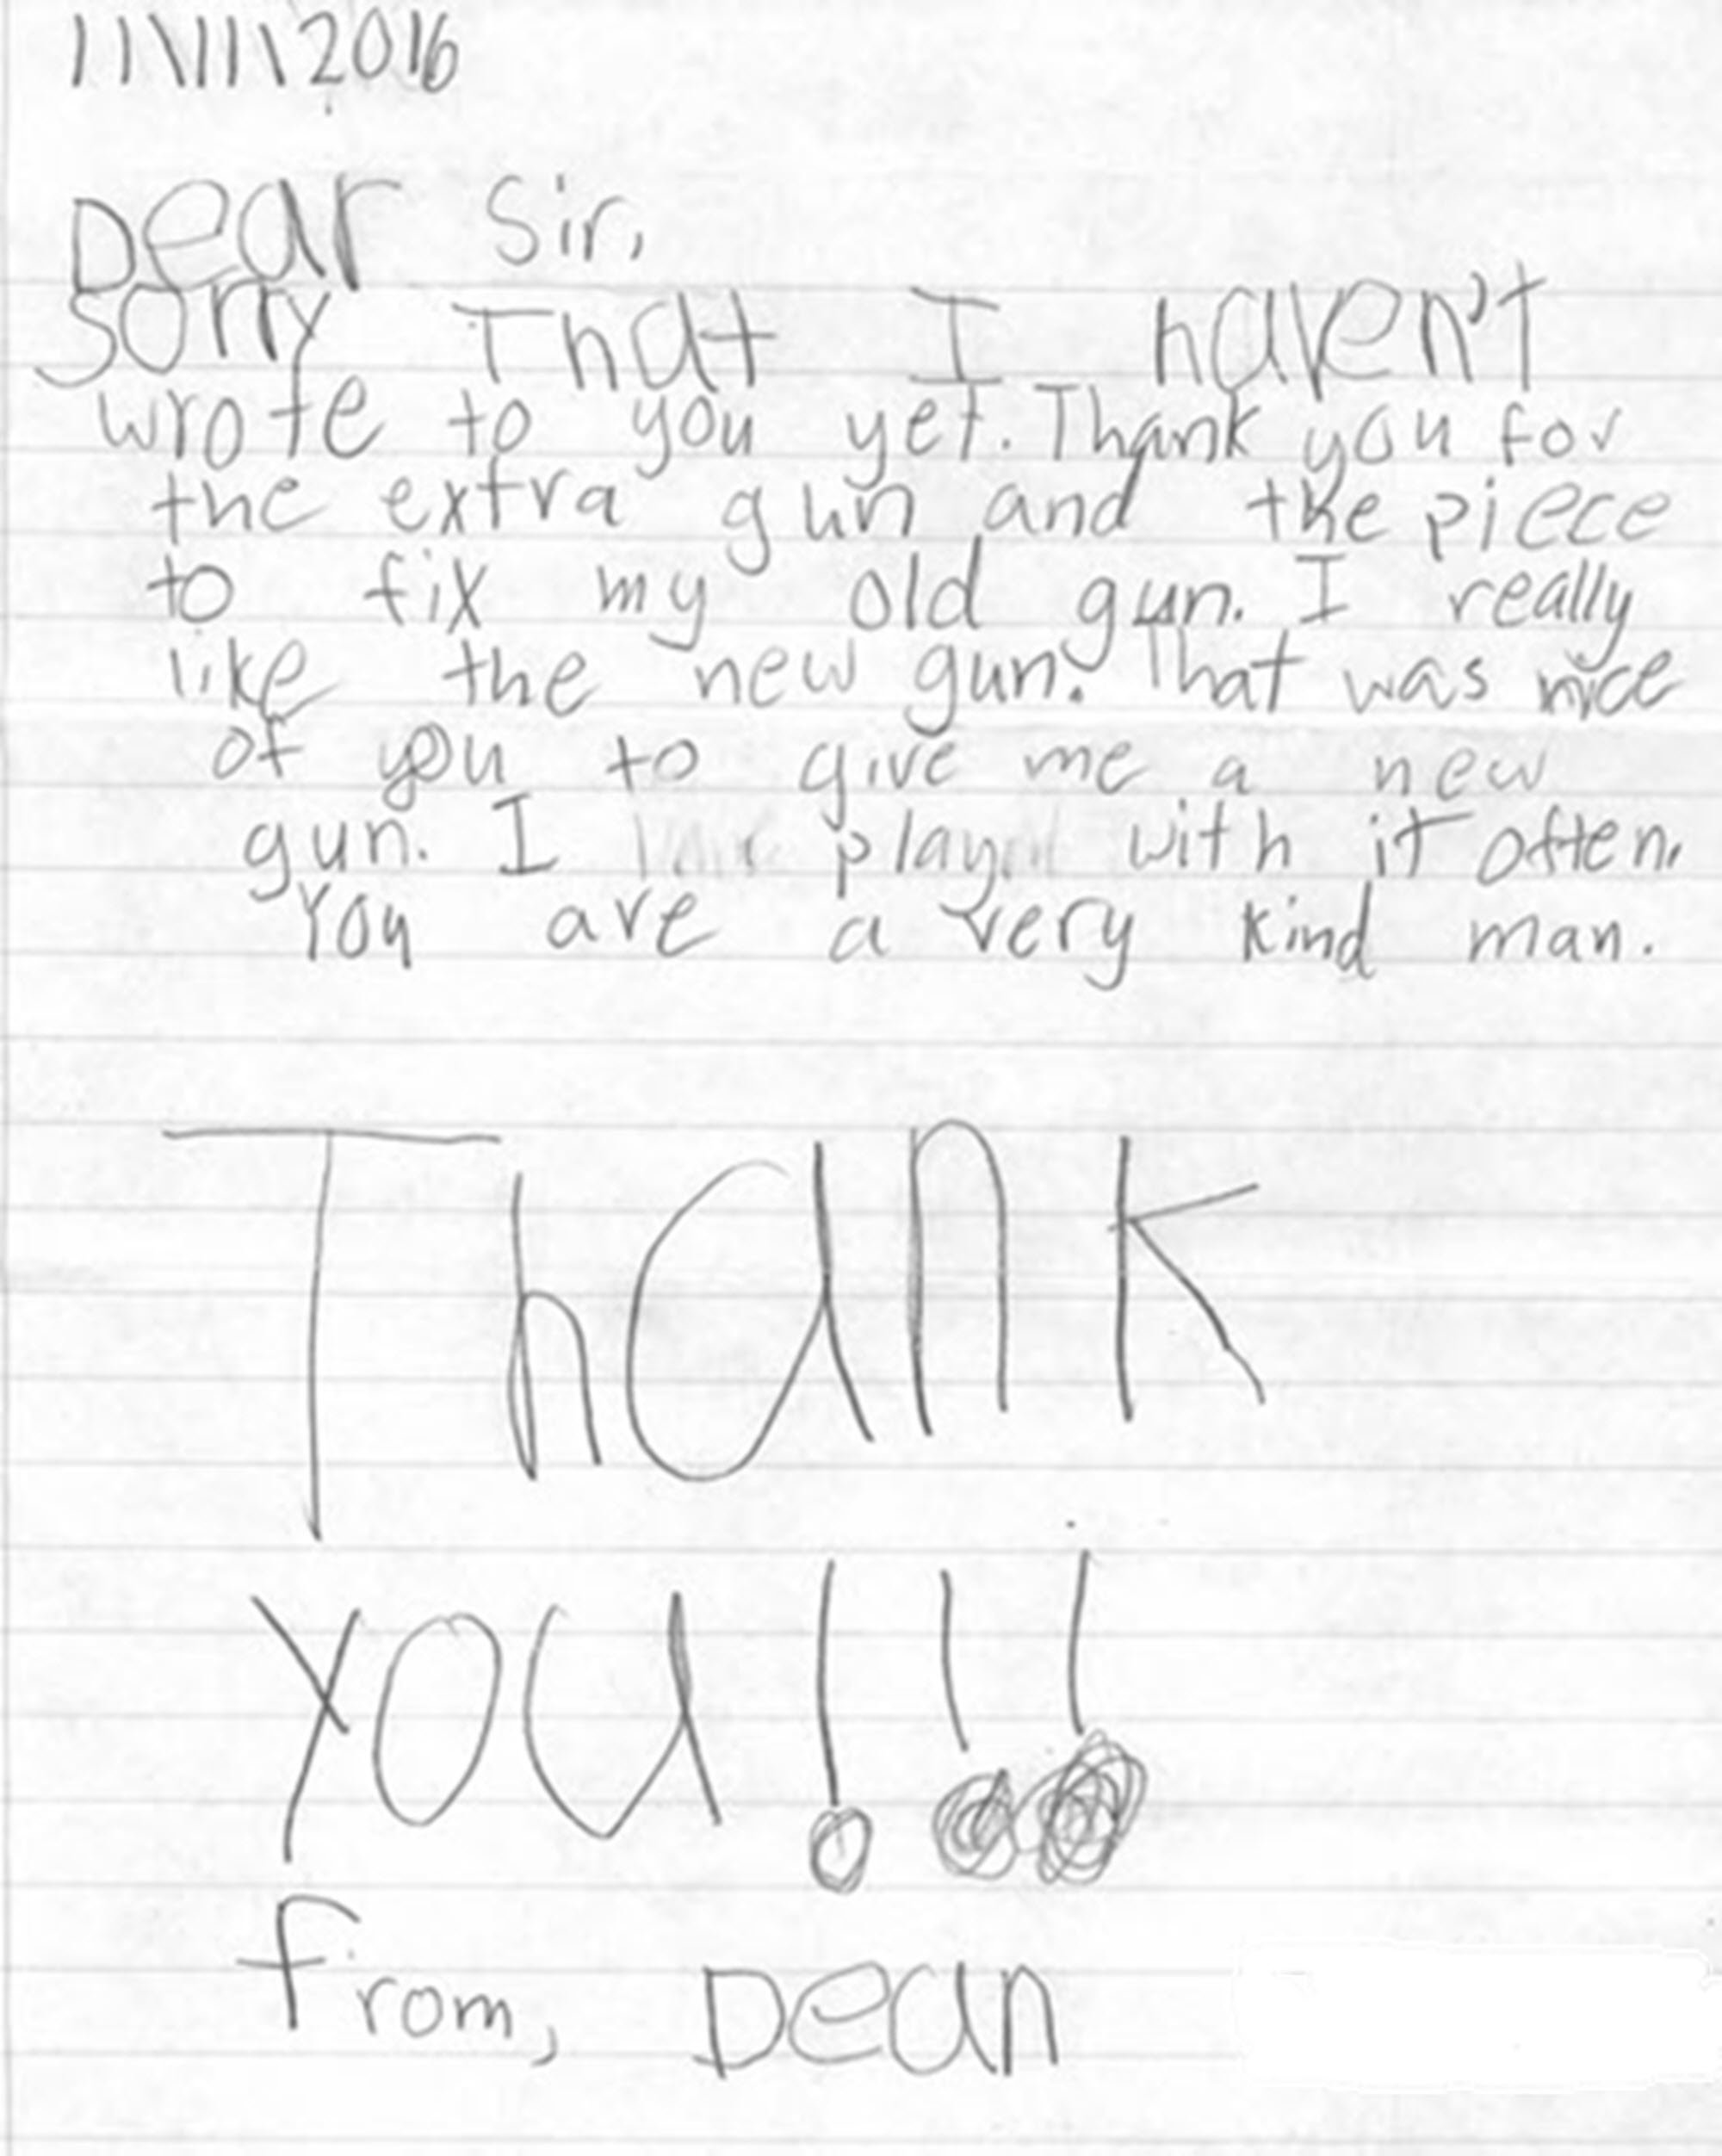 11\11\2016
Dear Sir,
Sorry That I haven't
wrote to you yet. Thank you for
the extra gun and the piece
to fix my old gun. I really
like the new gun. That was nice
of you to give me a new
gun. I play with it often.
You are a very kind man.
Thank
You!!!
From, Dean